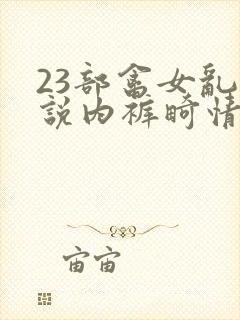 23部畜女亂
說内裤畸情
宙宙